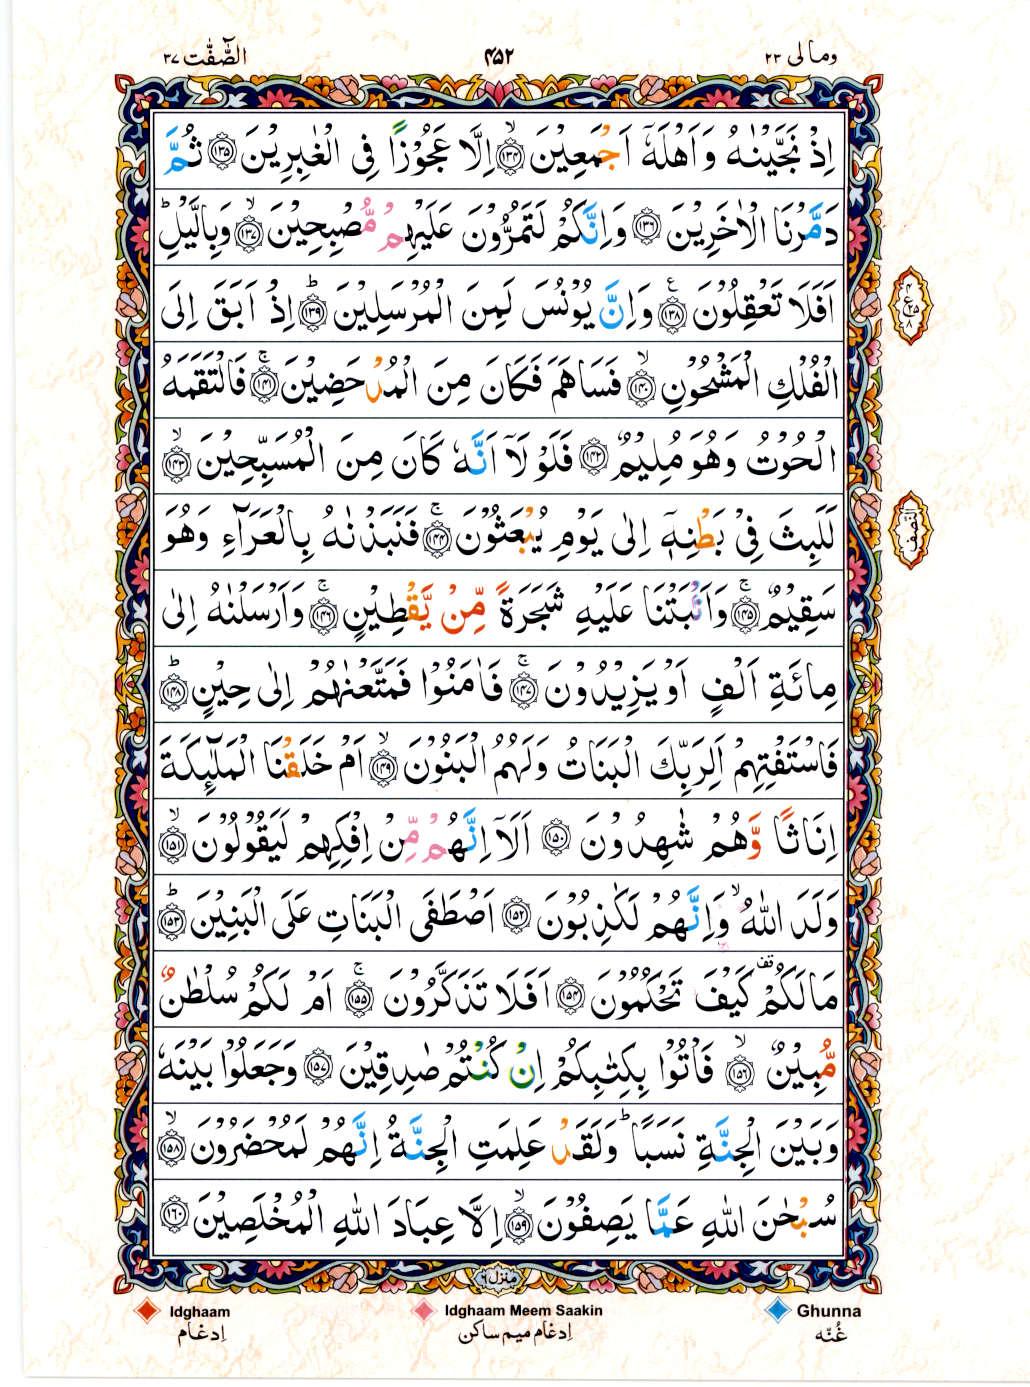 ومالی ۲۳
۴۵۲
الصّٰٓفّٰت ۳۷
اِذْ نَجَّيْنٰهُ وَاَهْلَهٗۤ اَجْمَعِيْنَ ۙ‏﴿۱۳۴﴾ اِلَّا عَجُوْزًا فِى الْغٰبِرِيْنَ ﴿۱۳۵﴾ ثُمَّ
دَمَّرْنَا الْاٰخَرِيْنَ ﴿۱۳۶﴾ وَاِنَّكُمْ لَتَمُرُّوْنَ عَلَيْهِمْ مُّصْبِحِيْنَ ۙ﴿۱۳۷﴾ وَبِالَّيْلِ ؕ
اَفَلَا تَعْقِلُوْنَ ﴿۱۳۸﴾ ع وَاِنَّ يُوْنُسَ لَمِنَ الْمُرْسَلِيْنَ ؕ﴿۱۳۹﴾ اِذْ اَبَقَ اِلَى
الْفُلْكِ الْمَشْحُوْنِ ۙ﴿۱۴۰﴾ فَسَاهَمَ فَكَانَ مِنَ الْمُدْحَضِيْنَ ۚ﴿۱۴۱﴾ فَالْتَقَمَهُ
الْحُوْتُ وَهُوَ مُلِيْمٌ ﴿۱۴۲﴾ فَلَوْلَاۤ اَنَّهٗ كَانَ مِنَ الْمُسَبِّحِيْنَ ۙ﴿۱۴۳﴾
لَلَبِثَ فِىْ بَطْنِهٖۤ اِلٰى يَوْمِ يُبْعَثُوْنَ ۚ﴿۱۴۴﴾ فَنَبَذْنٰهُ بِالْعَرَآءِ وَهُوَ
سَقِيْمٌ ۚ﴿۱۴۵﴾ وَاَنْۢبَتْنَا عَلَيْهِ شَجَرَةً مِّنْ يَّقْطِيْنٍ ۚ﴿۱۴۶﴾ وَاَرْسَلْنٰهُ اِلٰى
مِائَةِ اَلْفٍ اَوْ يَزِيْدُوْنَ ۚ﴿۱۴۷﴾ فَاٰمَنُوْا فَمَتَّعْنٰهُمْ اِلٰى حِيْنٍ ؕ﴿۱۴۸﴾
فَاسْتَفْتِهِمْ اَلِرَبِّكَ الْبَنَاتُ وَلَهُمُ الْبَنُوْنَ ۙ﴿۱۴۹﴾ اَمْ خَلَقْنَا الْمَلٰٓئِكَةَ
اِنَاثًا وَّهُمْ شٰهِدُوْنَ ﴿۱۵۰﴾ اَلَاۤ اِنَّهُمْ مِّنْ اِفْكِهِمْ لَيَقُوْلُوْنَ ۙ﴿۱۵۱﴾
وَلَدَ اللّٰهُ ۙ وَاِنَّهُمْ لَكٰذِبُوْنَ ﴿۱۵۲﴾ اَصْطَفَى الْبَنَاتِ عَلَى الْبَنِيْنَ ؕ﴿۱۵۳﴾
مَا لَكُمْ قف كَيْفَ تَحْكُمُوْنَ ﴿۱۵۴﴾ اَفَلَا تَذَكَّرُوْنَ ۚ﴿۱۵۵﴾ اَمْ لَكُمْ سُلْطٰنٌ
مُّبِيْنٌ ۙ﴿۱۵۶﴾ فَاْتُوْا بِكِتٰبِكُمْ اِنْ كُنْتُمْ صٰدِقِيْنَ ﴿۱۵۷﴾ وَجَعَلُوْا بَيْنَهٗ
وَبَيْنَ الْجِنَّةِ نَسَبًا ؕ وَلَقَدْ عَلِمَتِ الْجِنَّةُ اِنَّهُمْ لَمُحْضَرُوْنَ ۙ﴿۱۵۸﴾
سُبْحٰنَ اللّٰهِ عَمَّا يَصِفُوْنَ ۙ﴿۱۵۹﴾ اِلَّا عِبَادَ اللّٰهِ الْمُخْلَصِيْنَ ﴿۱۶۰﴾
۴
ع
۲۵
۸
النصف
منزل ۶
Ghunna
غُنّه
Idghaam Meem Saakin
اِدغام میم ساکن
Idghaam
اِدغام